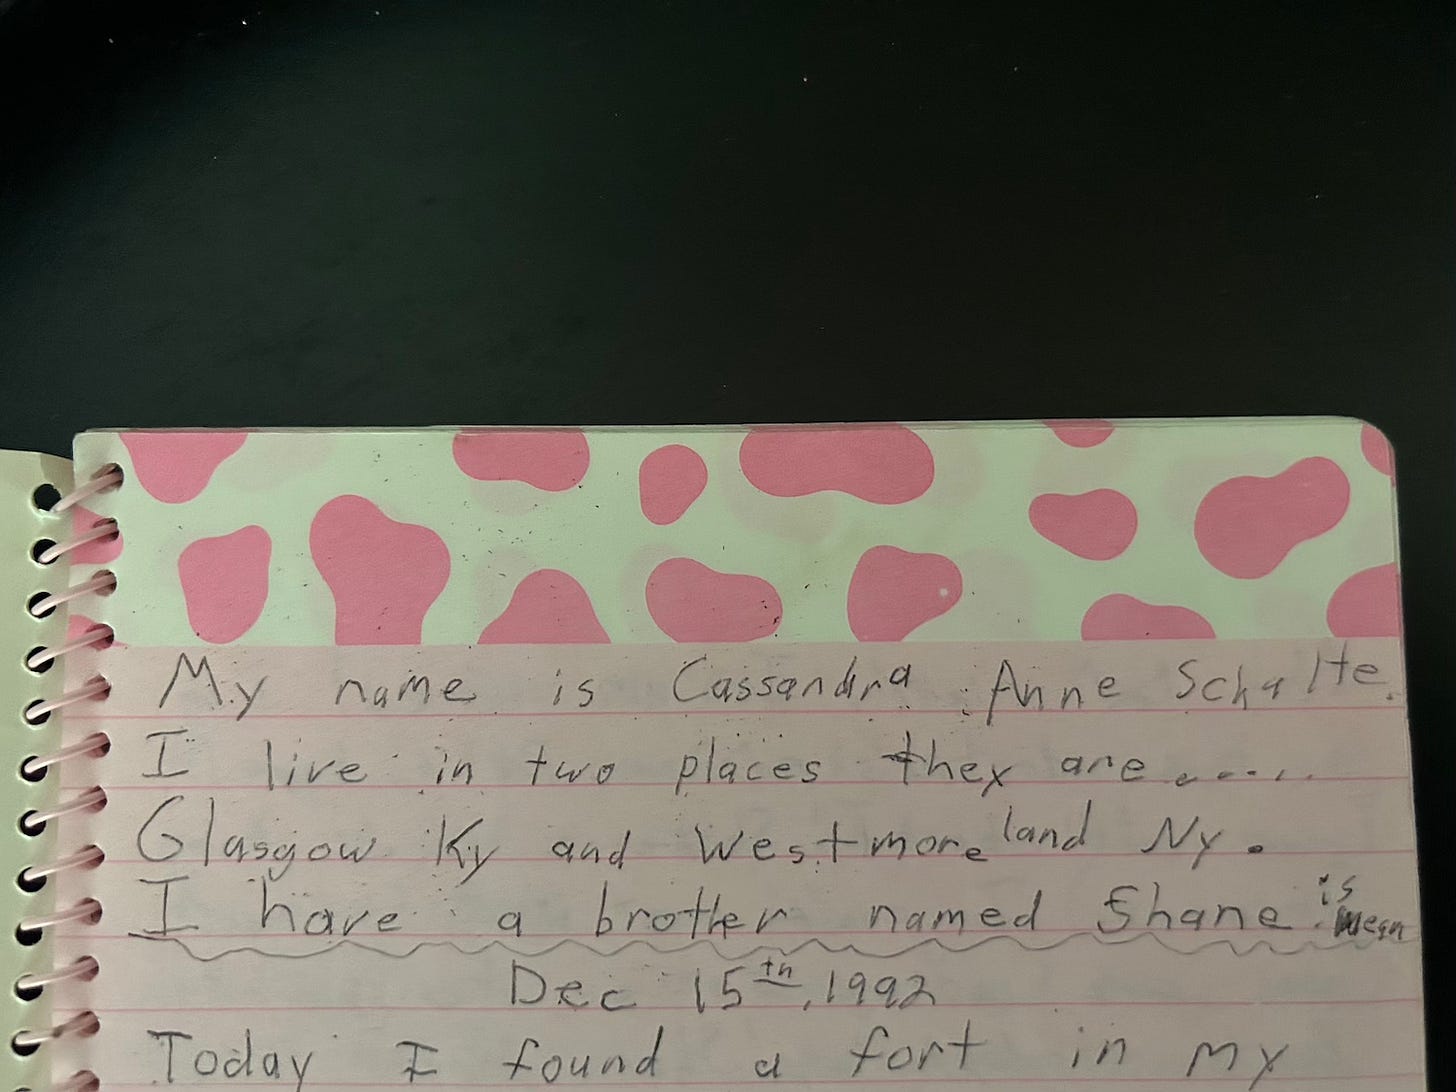 My name is Cassandra Anne Schalte.
I live in two places they are......
Glasgow Ky and Westmoreland Ny.
I have a brother named Shane is mean
Dec 15th, 1992
Today I found a fort in my